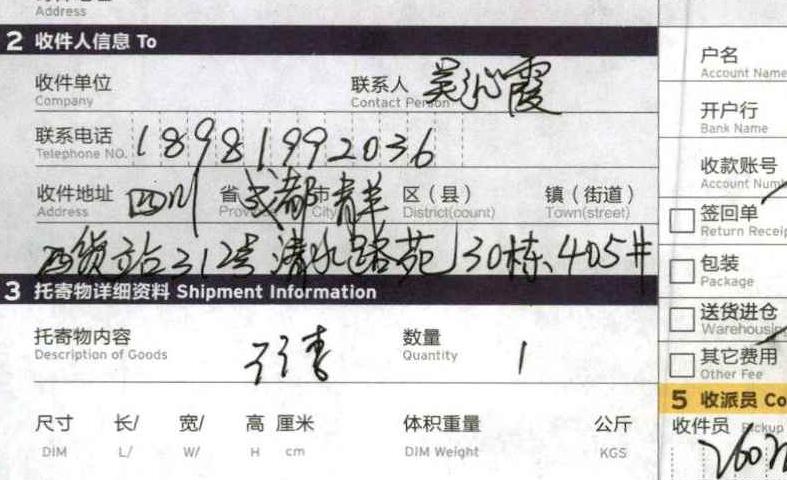 Address
2 收件人信息 To
收件单位 联系人 吴沁霞
Company Contact Person
联系电话 18981992036
Telephone NO.
收件地址 四川 省 成都 市 青羊 区（县） 镇（街道）
Address Province City District(count) Town(street)
西货站路312号清水路苑130栋、405#
3 托寄物详细资料 Shipment Information
托寄物内容 数量 1
Description of Goods Quantity
尺寸 长/ 宽/ 高 厘米 体积重量 公斤
DIM L/ W/ H cm DIM Weight KGS
户名
Account Name
开户行
Bank Name
收款账号
Account Num
签回单
Return Receip
包装
Package
送货进仓
Warehousing
其它费用
Other Fee
5 收派员 Co
收件员 Pickup